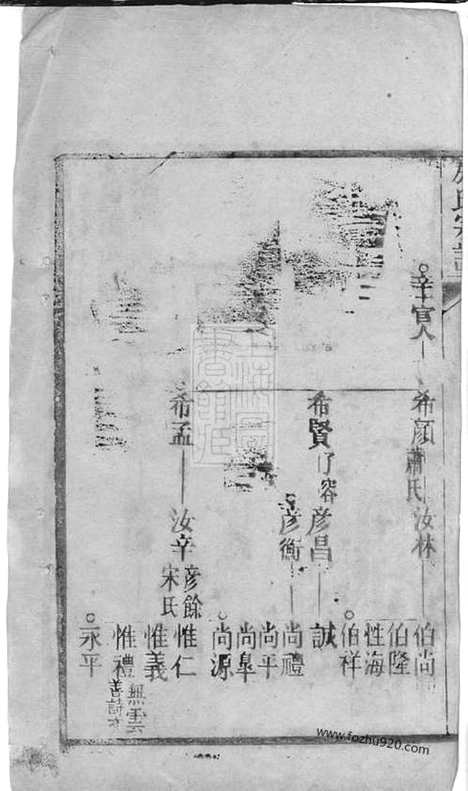 氏宗譜
辛官人
希顔蕭氏
汝林
伯尚
伯隆
性海
伯祥
希賢
了容
彦昌
誠
彦衡
尚禮
尚平
尚臯
尚源
希孟
汝辛
彦餘
宋氏
惟仁
惟義
惟禮
無雲
善詩
永平
www.fozhu920.com